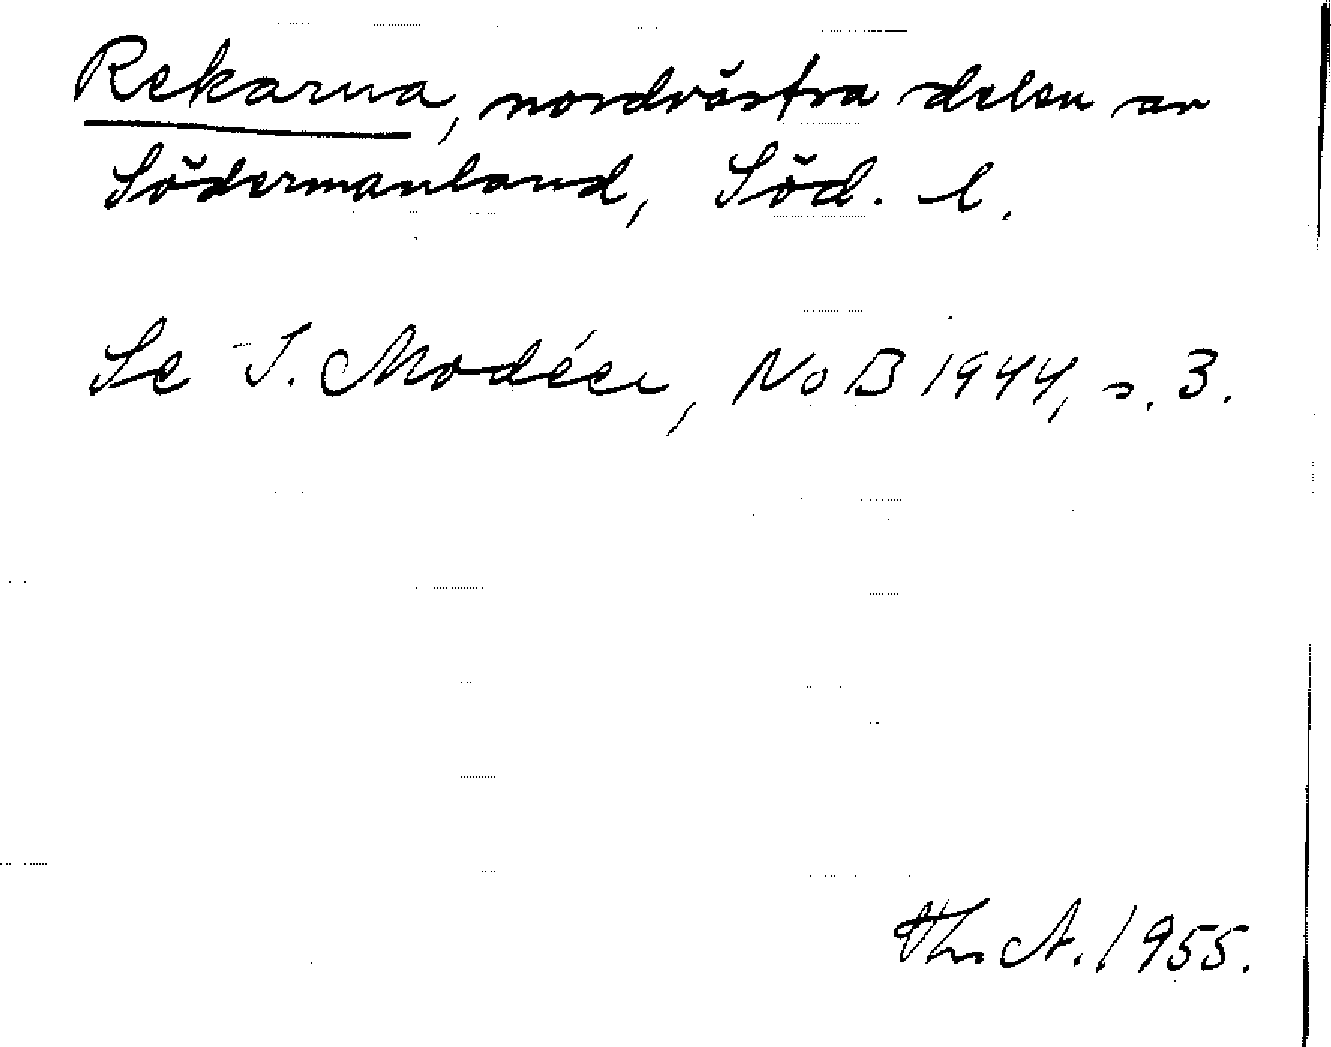 Rekarna, nordvästra delen av
Södermanland, Söd. l.
Se I. Modéer, NoB 1944, s. 3.
Thn A. 1955.